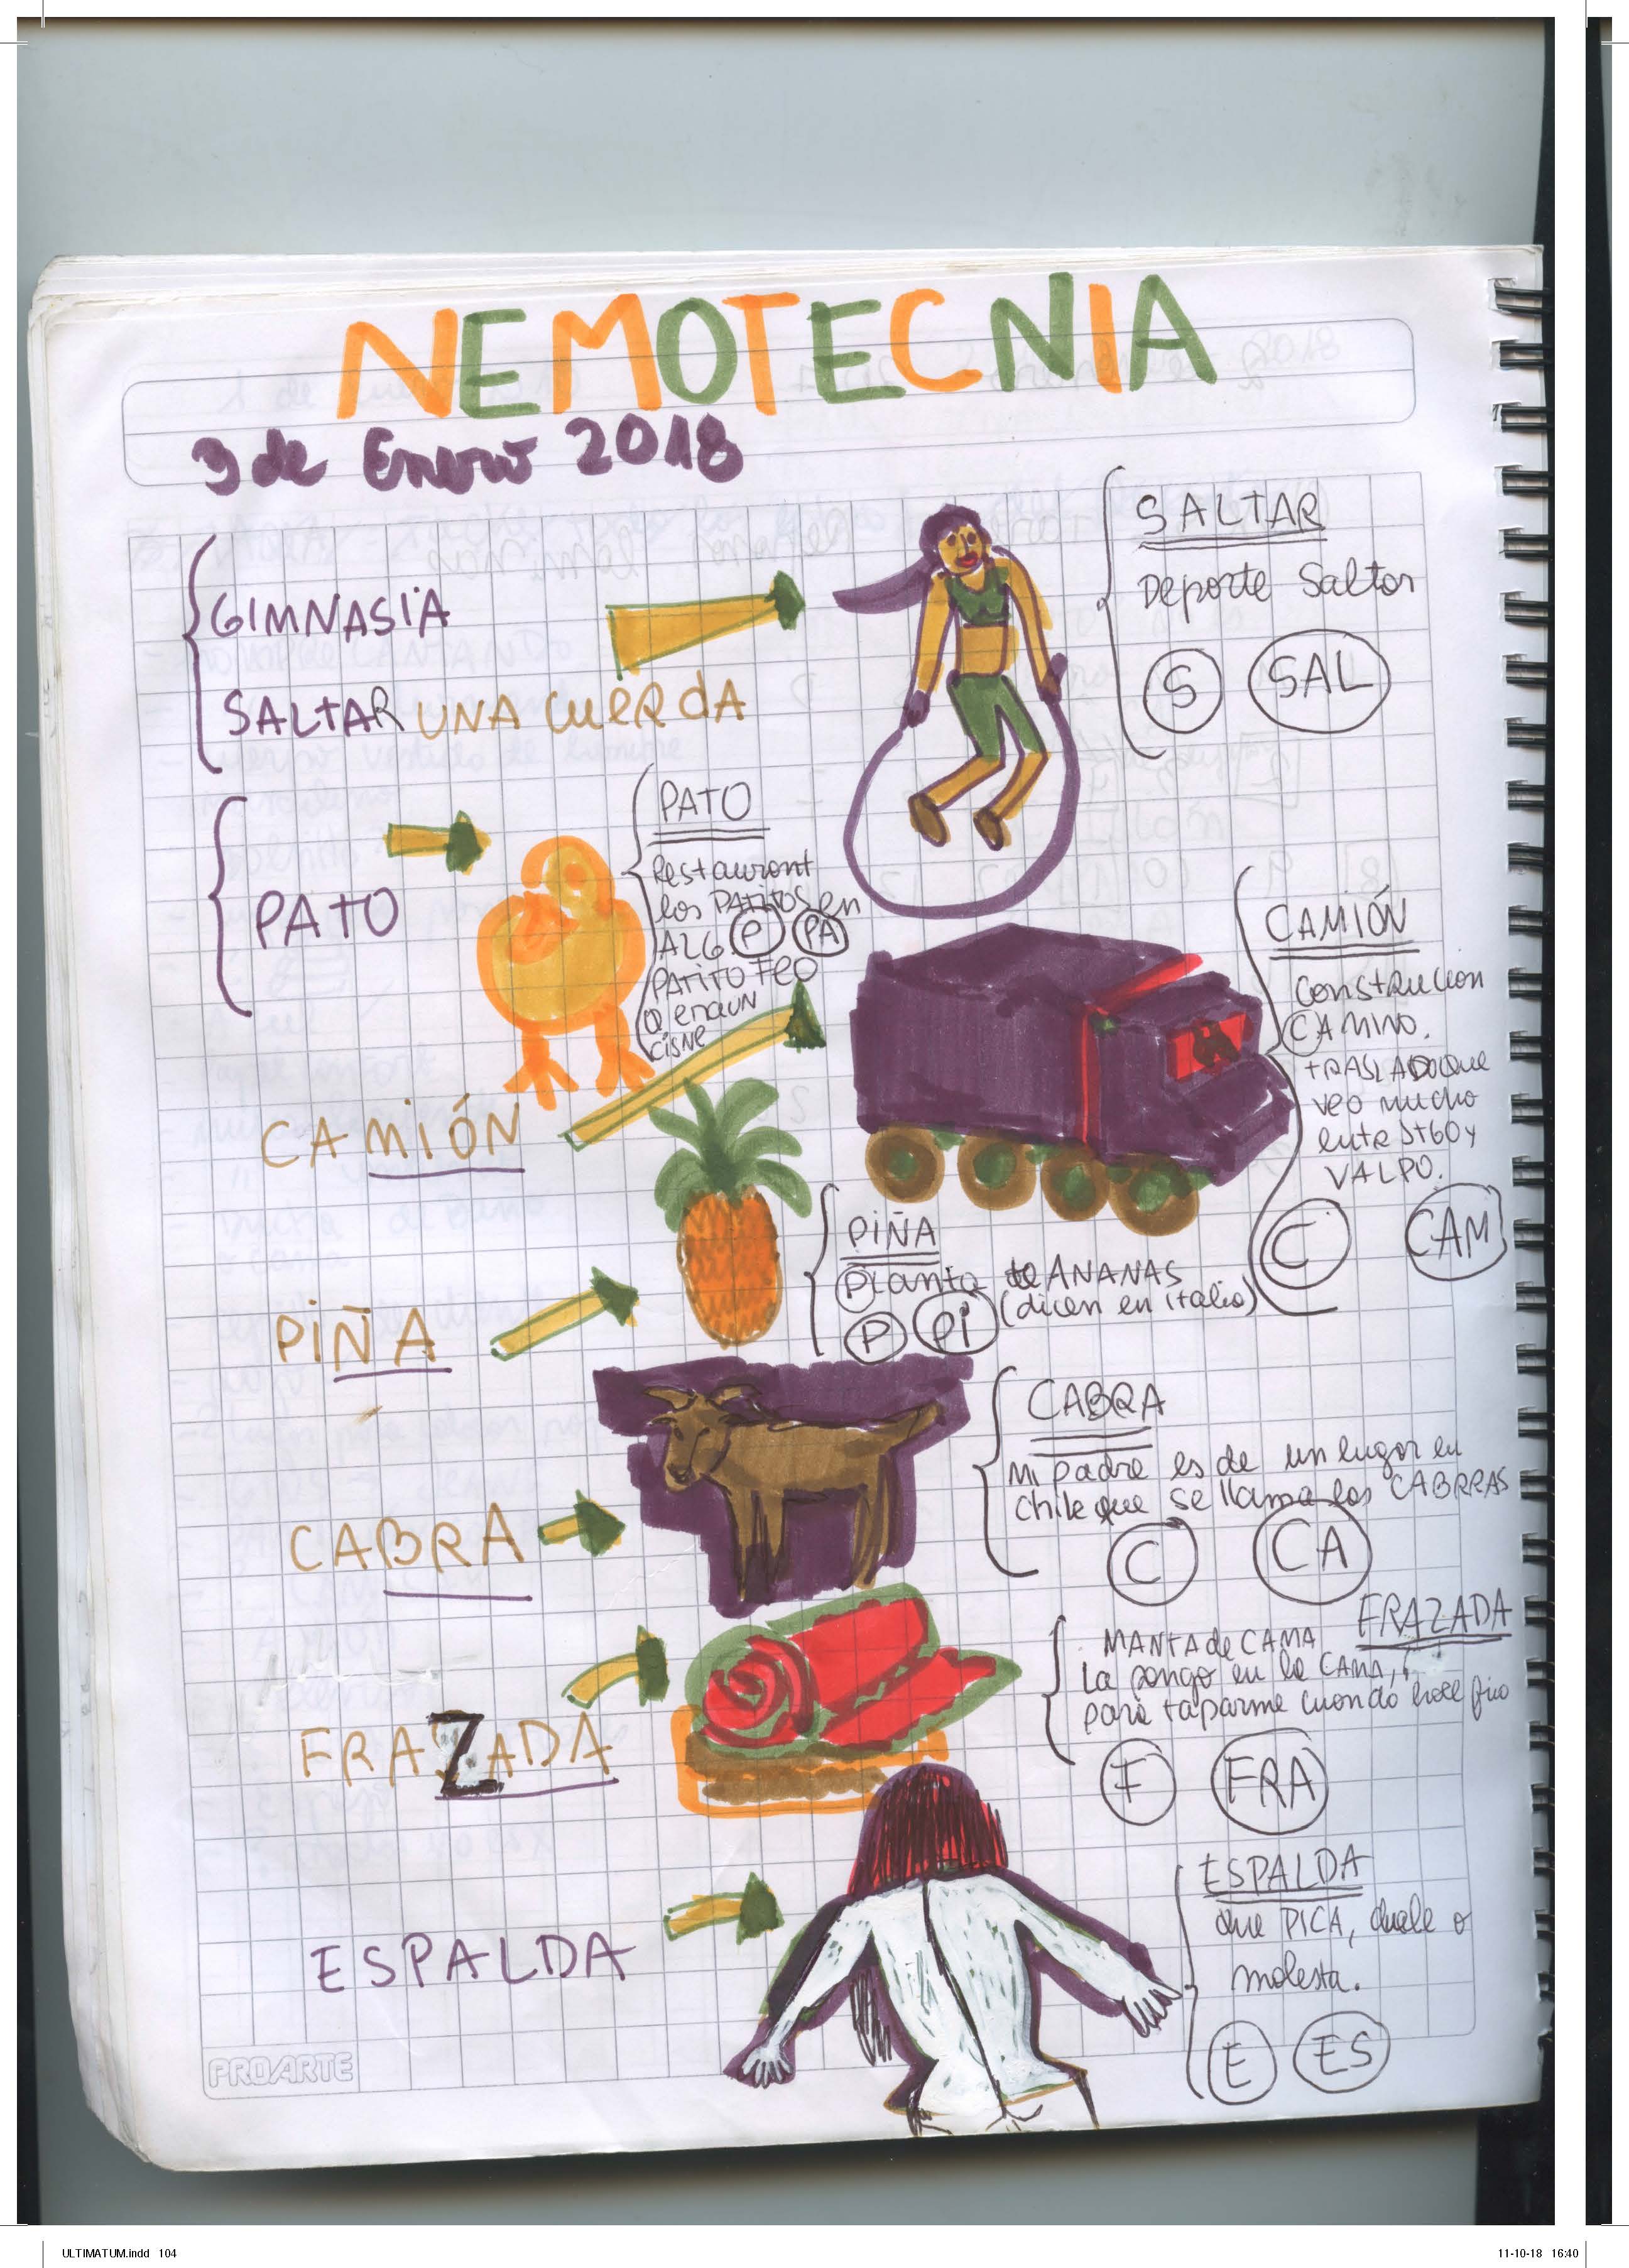 NEMOTECNIA
3 de Enero 2018
GIMNASIA
SALTAR UNA CUERDA
SALTAR
Deporte Saltar
S SAL
PATO
PATO
Restaurant
los PATITOS en
ALG. P PA
PATITO FEO
Q ERA UN
CISNE
CAMIÓN
CAMIÓN
CONSTRUCION
CAMINO.
TRASLADO QUE
veo mucho
ente STGO y
VALPO.
C CAM
PIÑA
PIÑA
Planta de ANANAS
(dicen en italia)
P Pi
CABRA
CABRA
Mi padre es de un lugar en
Chile que se llama las CABRRAS
C CA
FRAZADA
FRAZADA
MANTA de CAMA
La pongo en la CAMA,
para taparme cuando hace frio
F FRA
ESPALDA
ESPALDA
que PICA, duele o
molesta.
E ES
PROARTE
ULTIMATUM.indd 104
11-10-18 16:40